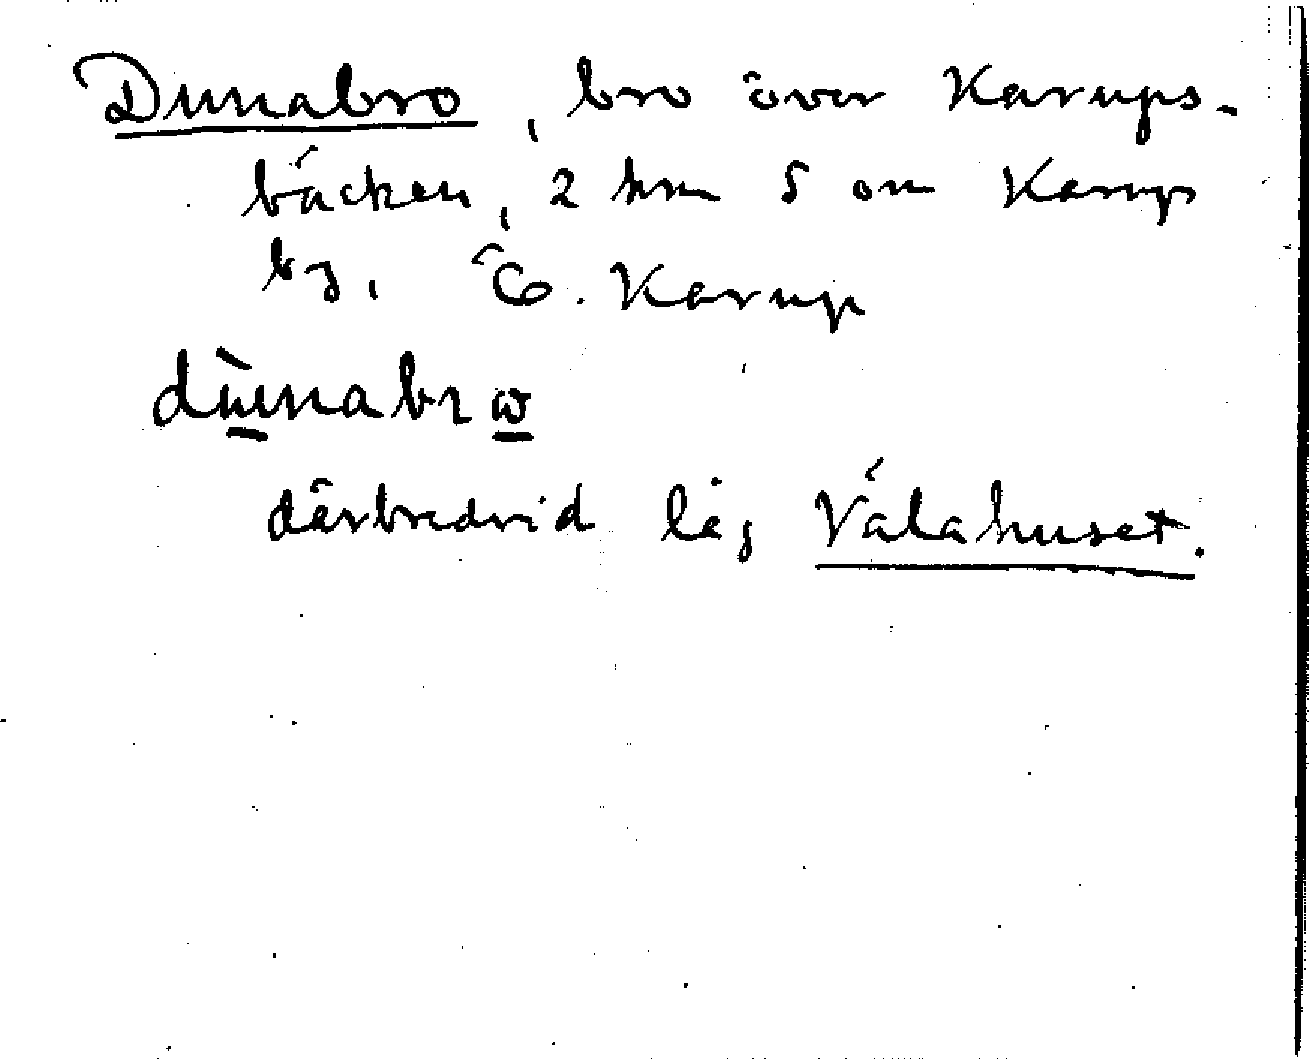 Dunabro, bro över Karups-
bäcken, 2 km S om Karup
by, Ö. Karup
dùnabrω
därbredvid låg Välahuset.